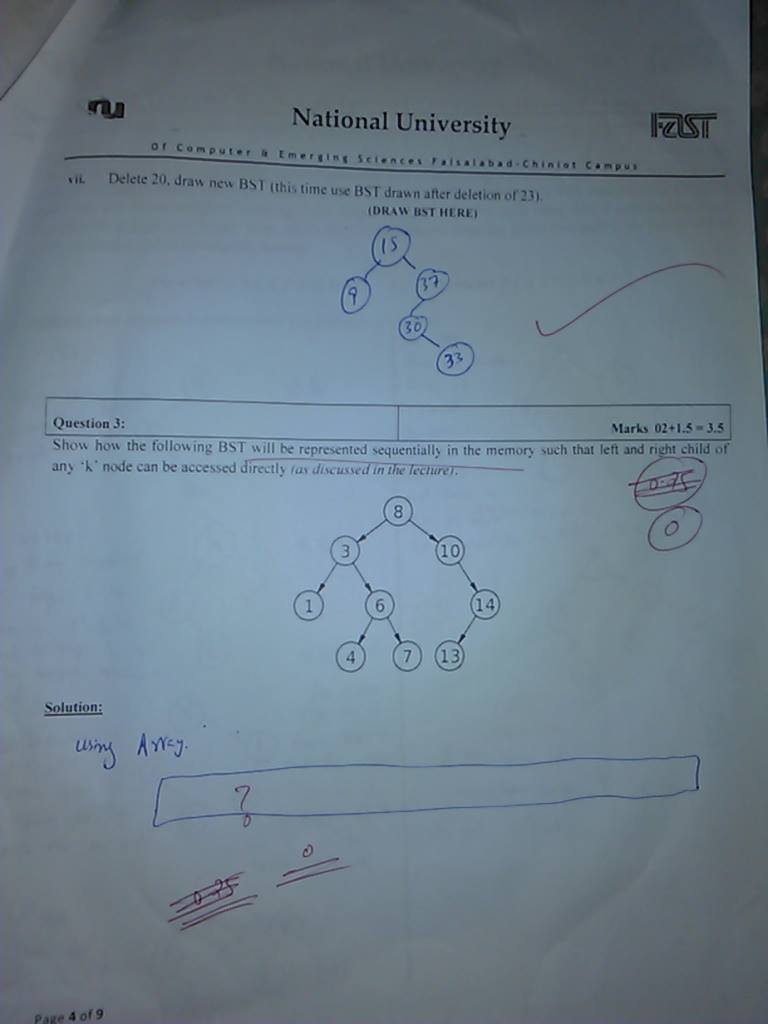 nu
National University
FAST
Of Computer & Emerging Sciences Faisalabad-Chiniot Campus
vii. Delete 20, draw new BST (this time use BST drawn after deletion of 23).
(DRAW BST HERE)
15
9 37
30
33
Question 3: Marks 02+1.5 = 3.5
Show how the following BST will be represented sequentially in the memory such that left and right child of
any ‘k’ node can be accessed directly (as discussed in the lecture).
0.75
0
8
3 10
1 6 14
4 7 13
Solution:
using Array.
?
0.75 0
Page 4 of 9